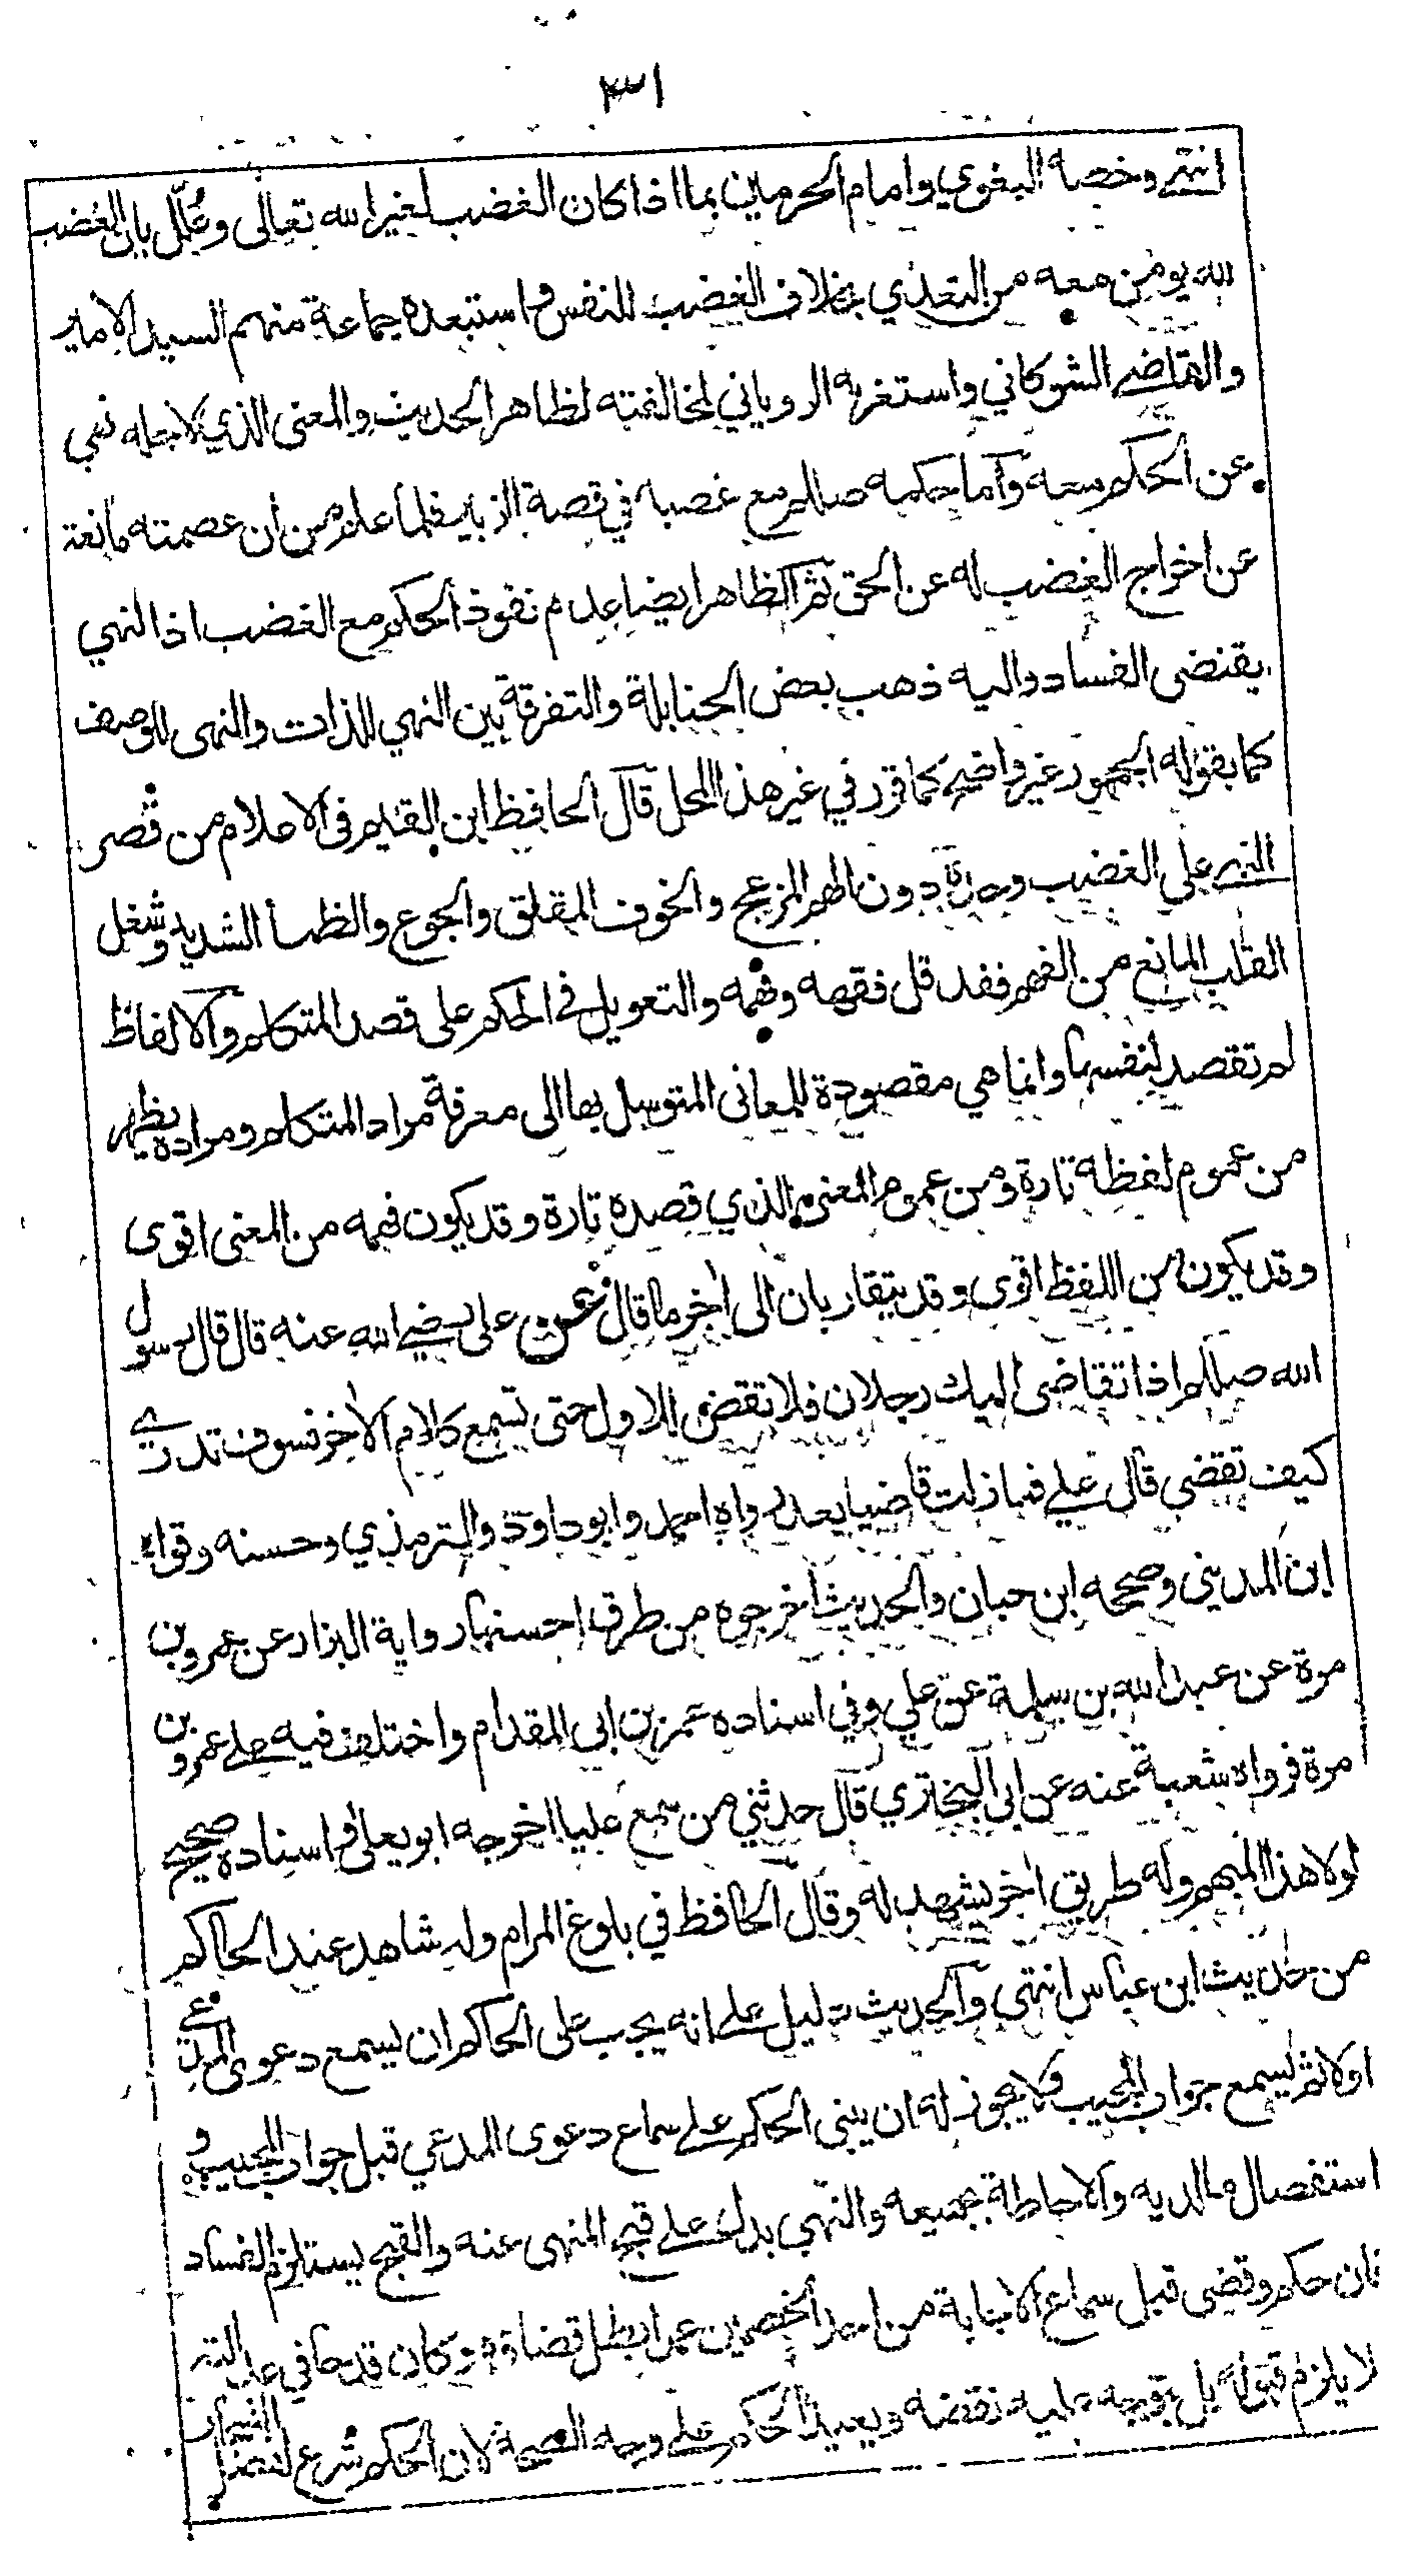 ٣١
انتهى وخصه البغوي وامام الحرمين بما اذا كان الغضب لغير الله تعالى وعُلّل بان الغضب
لله يومن معه من التعدي بخلاف الغضب للنفس واستبعده جماعة منهم السيد الامير
والقاضي الشوكاني واستغربه الروياني لمخالفته لظاهر الحديث والمعنى الذي لاجله نهي
عن الحكم معه وأما حكمه صللم مع غضبه في قصة الزبير فلما علم من أن عصمته مانعة
عن اخراج الغضب له عن الحق ثم الظاهر ايضا عدم نفوذ الحكم مع الغضب اذ النهي
يقتضى الفساد واليه ذهب بعض الحنابلة والتفرقة بين النهي للذات والنهى للوصف
كما يقوله الجمهور غير واضح كما قرر في غير هذا المحل قال الحافظ ابن القيم فى الاعلام من قصر
النهي على الغضب وحده دون الهم المزعج والخوف المقلق والجوع والظمأ الشديد وشغل
القلب المانع من الفهم فقد قل فقهه وفهمه والتعويل في الحكم على قصد المتكلم والالفاظ
لم تقصد لنفسها وانما هي مقصودة للمعانى المتوسل بها الى معرفة مراد المتكلم ومراده يظهر
من عموم لفظه تارة ومن عموم المعنى الذي قصده تارة وقد يكون فهمه من المعنى اقوى
وقد يكون من اللفظ اقوى وقد يتقاربان الى اخر ما قال عن على رضي الله عنه قال قال رسول
الله صللم اذا تقاضى اليك رجلان فلا تقض للاول حتى تسمع كلام الاخر فسوف تدري
كيف تقضي قال علي فما زلت قاضيا بعد رواه احمد وابو داود والترمذي وحسنه وقواه
ابن المديني وصححه ابن حبان والحديث أخرجوه من طرق احسنها رواية البزار عن عمرو بن
مرة عن عبد الله بن سلمة عن علي وفي اسناده عمر بن ابي المقدام واختلف فيه على عمرو بن
مرة فرواه شعبة عنه عن ابى البختري قال حدثني من سمع عليا اخرجه ابو يعلى واسناده صحيح
لولا هذا المبهم وله طريق اخر يشهد له وقال الحافظ في بلوغ المرام وله شاهد عند الحاكم
من حديث ابن عباس انتهى والحديث دليل على انه يجب على الحاكم ان يسمع دعوى المدعي
اولا ثم يسمع جواب المجيب ولا يجوز له ان يبنى الحكم على سماع دعوى المدعي قبل جواب المجيب و
استفصال ما لديه والاحاطة بجميعه والنهي يدل على قبح المنهى عنه والقبح يستلزم الفساد
فان حكم وقضى قبل سماع الاجابة من احد الخصمين عمدا بطل قضاؤه وكان قدحا في عدالته
لا يلزم قبوله بل يتوجه عليه نقضه ويعيد الحكم على وجه الصحة لان الحكم شرع لفصل الشجار